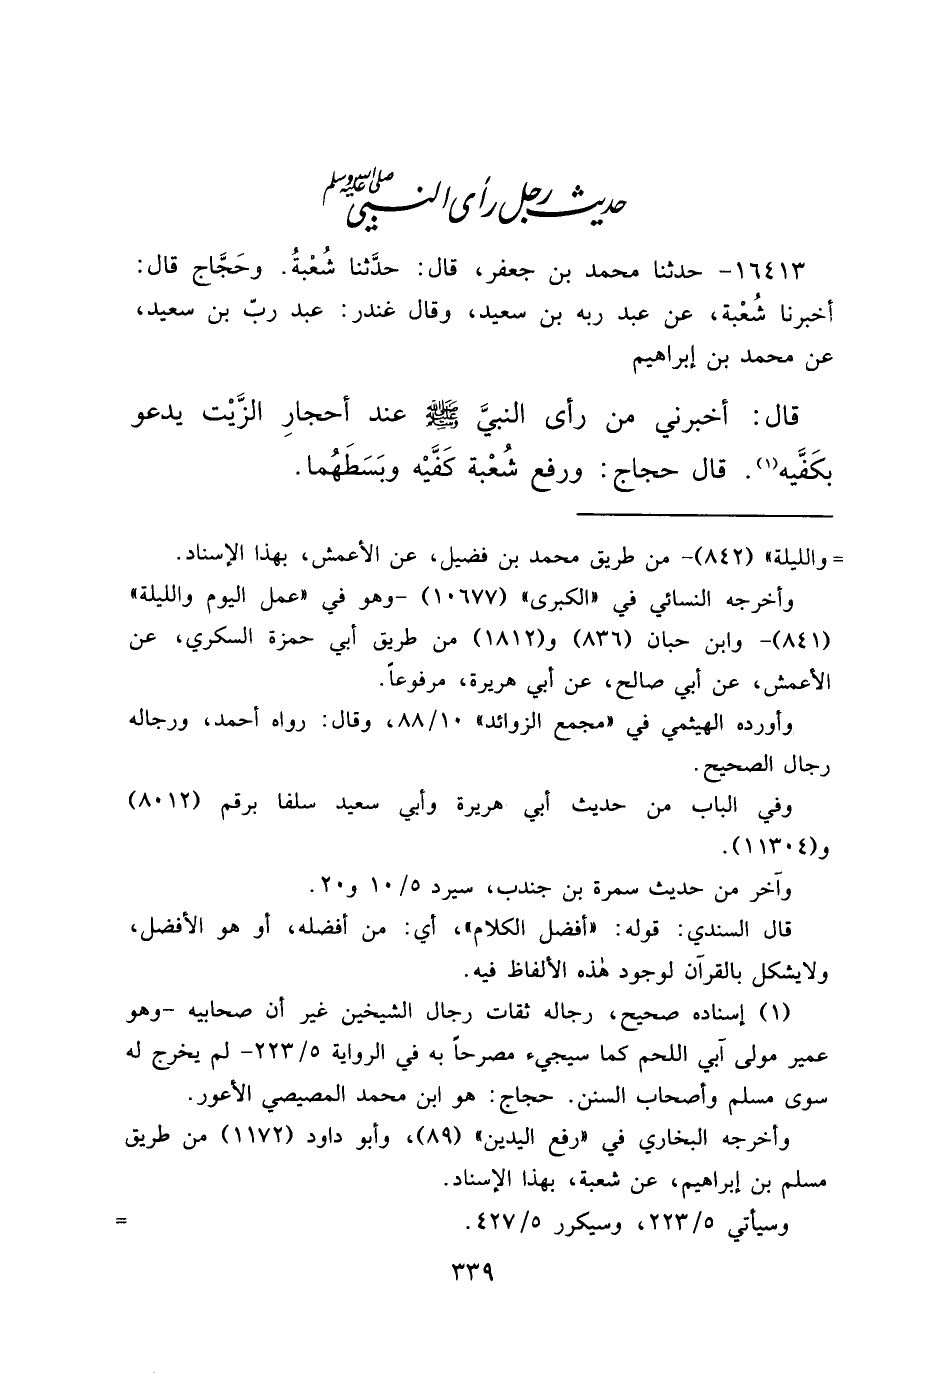 حديث رجل رأى النبي صلى الله عليه وسلم
١٦٤١٣- حدثنا محمد بن جعفر، قال: حدَّثنا شُعْبةُ. وحَجَّاج قال:
أخبرنا شُعْبة، عن عبد ربه بن سعيد، وقال غندر: عبد ربّ بن سعيد،
عن محمد بن إبراهيم
قال: أخبرني من رأى النبيَّ ﷺ عند أحجارِ الزَّيْت يدعو
بكَفَّيه(١). قال حجاج: ورفع شُعْبة كَفَّيْه وبَسَطَهُما.
= والليلة» (٨٤٢)- من طريق محمد بن فضيل، عن الأعمش، بهذا الإسناد.
وأخرجه النسائي في «الكبرى» (١٠٦٧٧) -وهو في «عمل اليوم والليلة»
(٨٤١)- وابن حبان (٨٣٦) و(١٨١٢) من طريق أبي حمزة السكري، عن
الأعمش، عن أبي صالح، عن أبي هريرة، مرفوعاً.
وأورده الهيثمي في «مجمع الزوائد» ٨٨/١٠، وقال: رواه أحمد، ورجاله
رجال الصحيح.
وفي الباب من حديث أبي هريرة وأبي سعيد سلفا برقم (٨٠١٢)
و(١١٣٠٤).
وآخر من حديث سمرة بن جندب، سيرد ١٠/٥ و٢٠.
قال السندي: قوله: «أفضل الكلام»، أي: من أفضله، أو هو الأفضل،
ولايشكل بالقرآن لوجود هٰذه الألفاظ فيه.
(١) إسناده صحيح، رجاله ثقات رجال الشيخين غير أن صحابيه -وهو
عمير مولى آبي اللحم كما سيجيء مصرحاً به في الرواية ٢٢٣/٥- لم يخرج له
سوى مسلم وأصحاب السنن. حجاج: هو ابن محمد المصيصي الأعور.
وأخرجه البخاري في «رفع اليدين» (٨٩)، وأبو داود (١١٧٢) من طريق
مسلم بن إبراهيم، عن شعبة، بهذا الإسناد.
وسيأتي ٢٢٣/٥، وسيكرر ٤٢٧/٥. =
٣٣٩